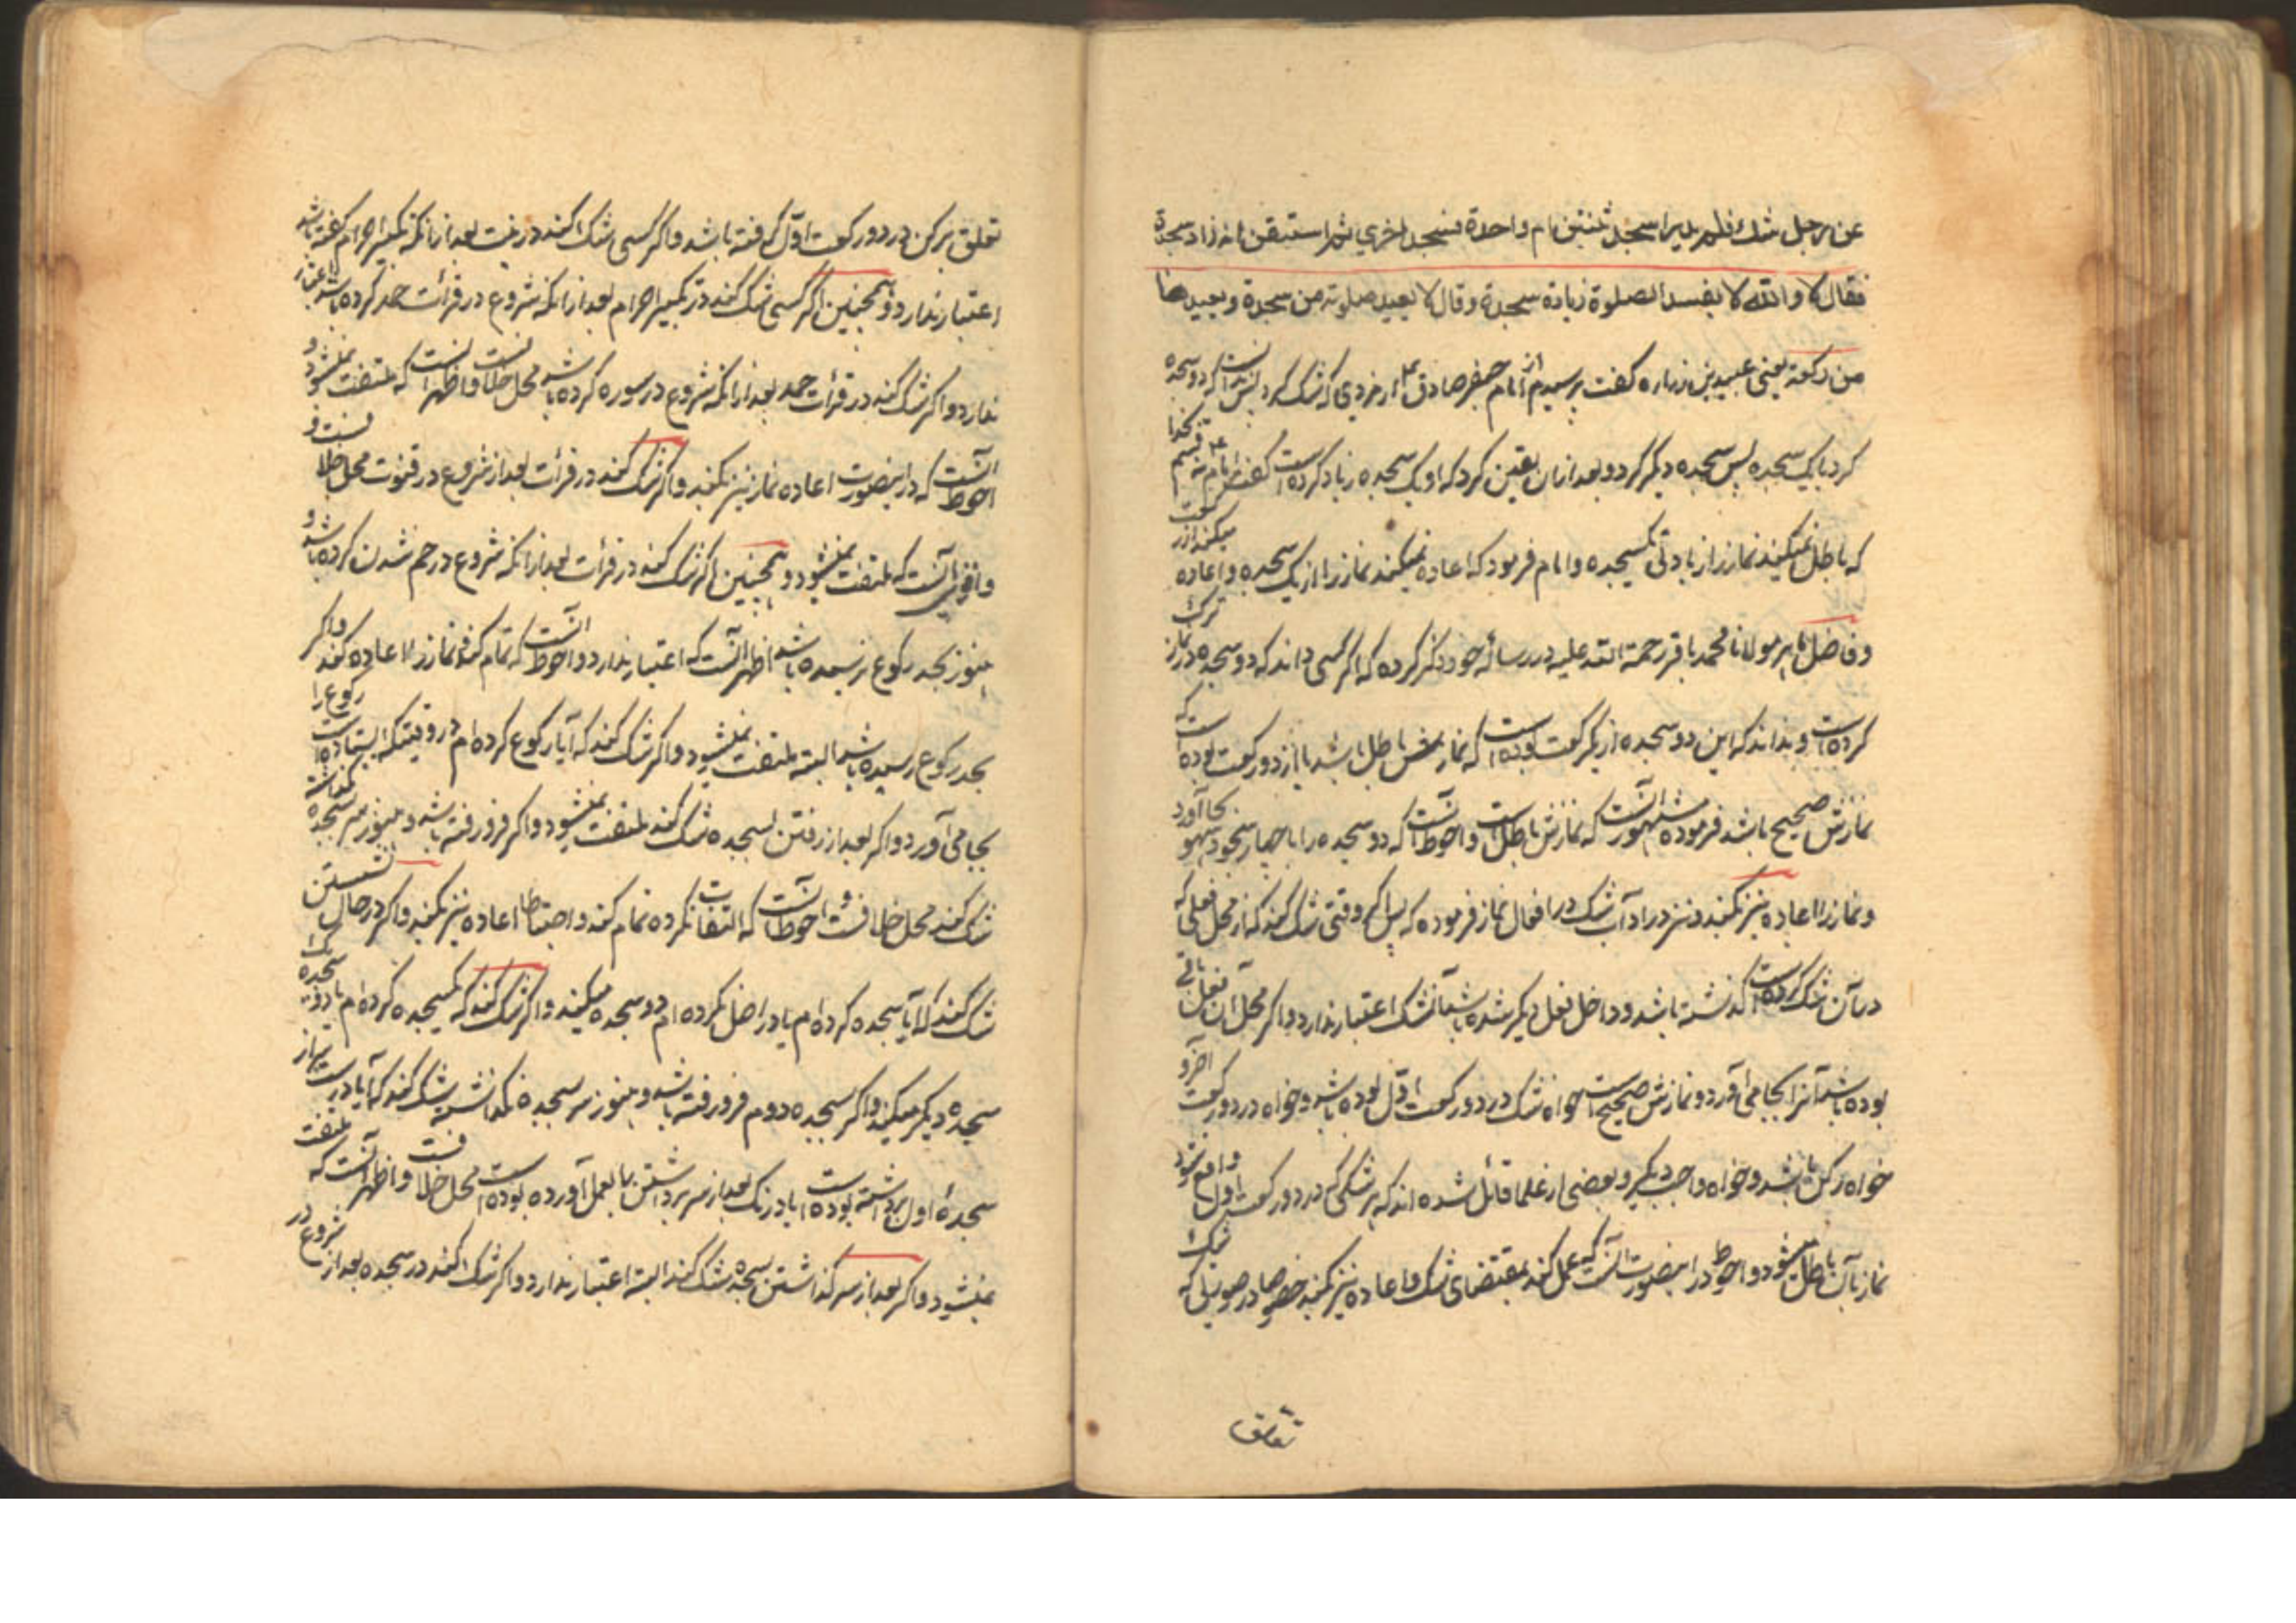 عن رجل شك فلم يدر اسجد ثنتين ام واحدة فسجد اخري ثم استيقن انه زاد سجدة
فقال لا والله لا يفسد الصلوة زيادة سجدة وقال لا يعيد صلوته من سجدة ويعيدها
من ركعة يعنى عبيد بن زراره كفت پرسيدم از امام جعفر صادق ع از مردي كه شك كرد پس ندانست كه دو سجده
كرد يا يك سجده پس سجده ديكر كرد و بعد ازان يقين كرد كه او يك سجده زياد كرده است كفت امام ع نه قسم بخدا
كه باطل نميكند نماز را زيادتى يكسجده و امام فرمود كه اعاده نميكند نماز را از يك سجده و اعاده ميكند از ركعت
و فاضل ماهر مولانا محمد باقر رحمة الله عليه در رساله خود ذكر كرده كه اكر كسى داند كه دو سجده در نماز ترك
كرده است و نداند كه اين دو سجده از يكركعت بوده است كه نمازش باطل باشد يا از دو ركعت بوده است كه
نمازش صحيح باشد فرموده مشهور انست كه نمازش باطل است و احوط آنست كه دو سجده را با چهار سجود سهو بجا آورد
و نماز را اعاده نيز بكند و نيز در اداب شك در افعال نماز فرموده كه پس اكر وقتى شك كند كه از محل فعلى كه
در آن شك كرده است كذشته باشد و داخل فعل ديكر شده باشد آن شك اعتبار ندارد و اكر محل ان فعل باقى
بوده باشد آنرا بجا مى آورد و نمازش صحيح است خواه شك در دو ركعت اول بوده باشد و خواه در دو ركعت آخر و
خواه ركن باشد و خواه واجب ديكر و بعضى از علما قائل شده اند كه هر شكى كه در دو ركعت اول واقع شود
نماز بآن باطل ميشود و احوط در اينصورت آنست كه عمل كند بمقتضاى شك و اعاده نيز بكند خصوصا در صورتى كه شك
تعلق
تعلق بركن در دو ركعت اول كرفته باشد و اكر كسى شك كند در نيت بعد از انكه تكبير احرام كفته باشد
اعتبار ندارد و همچنين اكر كسى شك كند در تكبير احرام بعد از انكه شروع در قرائت حمد كرده باشد اعتبار
ندارد و اكر شك كند در قرائت حمد بعد از انكه شروع در سوره كرده باشد محل خلافست و اظهر انست كه ملتفت نميشود و
احوط آنست كه در اينصورت اعاده نماز نيز بكند و اكر شك كند در قرائت بعد از شروع در قنوت محل خلافست و
و اقوى آنست كه ملتفت نميشود و همچنين اكر شك كند در قرائت بعد از انكه شروع در خم شدن كرده باشد و
هنوز بحد ركوع نرسيده باشد اظهر آنست كه اعتبار ندارد و احوط انست كه تمام كند و نماز را اعاده كند و اكر
بحد ركوع رسيده باشد البته ملتفت نميشود و اكر شك كند كه آيا ركوع كرده ام در وقتيكه ايستاده است ركوع را
بجا مى آورد و اكر بعد از رفتن بسجده شك كند ملتفت نميشود و اكر فرو رفته باشد و هنوز سر بسجده نكذاشته
شك كند محل خلافست و احوط آنست كه التفات نكرده تمام كند و احتياطا اعاده نيز بكند و اكر در حال نشستن
شك كند كه آيا سجده كرده ام يا در اصل نكرده ام دو سجده ميكند و اكر شك كند كه يكسجده كرده ام يا دو سجده يك
سجده ديكر ميكند و اكر بسجده دوم فرو رفته باشد و هنوز سر بسجده نكذاشته شك كند كه آيا درست سر از
سجدهٔ اول برداشته بوده است يا درنك بعد از سر برداشتن بعمل آورده بوده است محل خلافست و اظهر آنست كه ملتفت
نميشود و اكر بعد از سر كذاشتن بسجده شك كند البته اعتبار ندارد و اكر شك كند در سجده بعد از شروع در